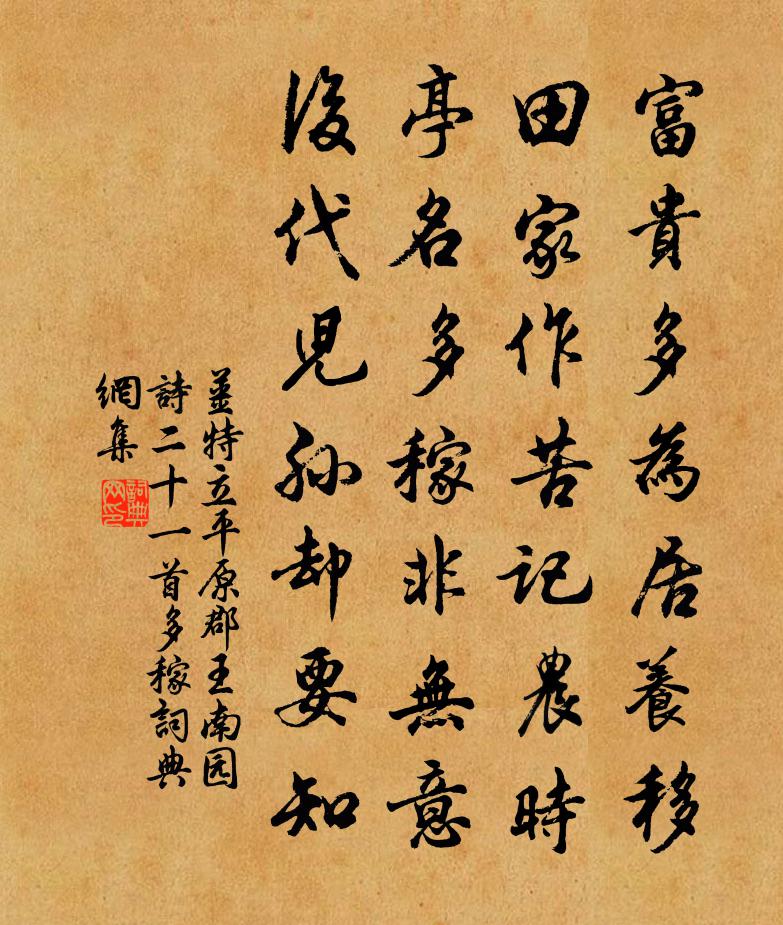 富貴多為居養移
田家作苦記農時
亭名多稼非無意
後代兒孫却要知
姜特立平原郡王南园
詩二十一首多稼詞典
網集
詞典
网印